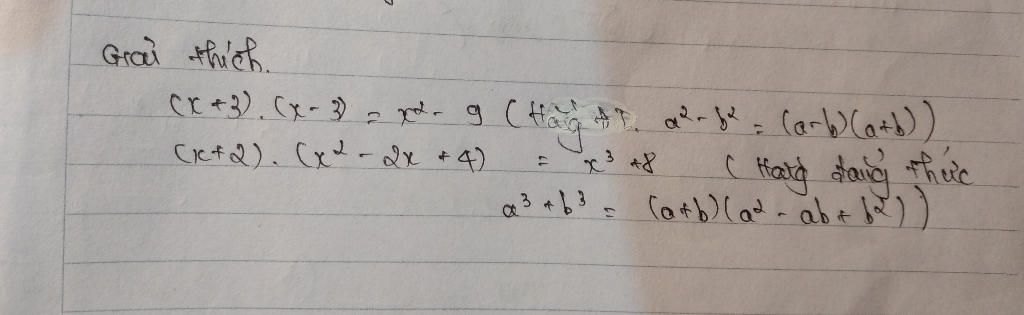 Giải thích.
(x+3).(x-3) = x² - 9 (Hằng đt. a² - b² = (a-b)(a+b))
(x+2).(x² - 2x + 4) = x³ + 8 (Hằng đẳng thức
a³ + b³ = (a+b)(a² - ab + b²))